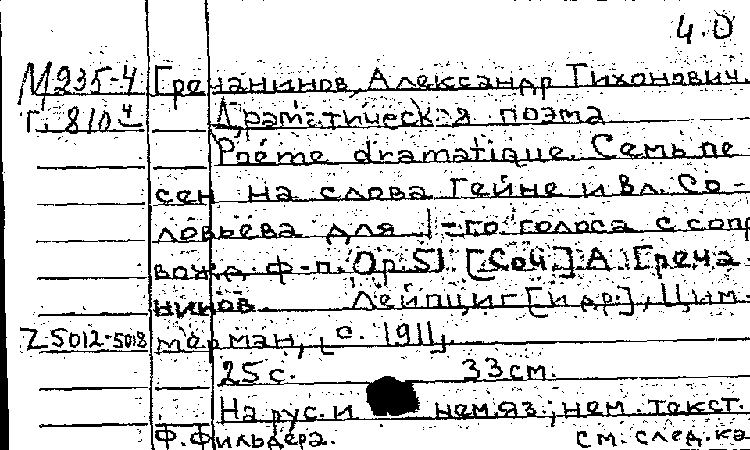 4.0
М235-4 Гречанинов, Александр Тихонович.
Г. 810 4 Драматическая поэма
Poème dramatique. Семь пе
сен на слова Гейне и Вл. Со-
ловьева для 1-го голоса с сопр
вожд. ф-п. Op. 51. [Соч.] А. Греча
нинов Лейпциг [и др.], Цим
Z 5012-5018 мерман, [c. 1911].
25 с. 33 см.
На рус. и нем. яз.; нем. текст.
Ф. Фильдера. см. след. ка